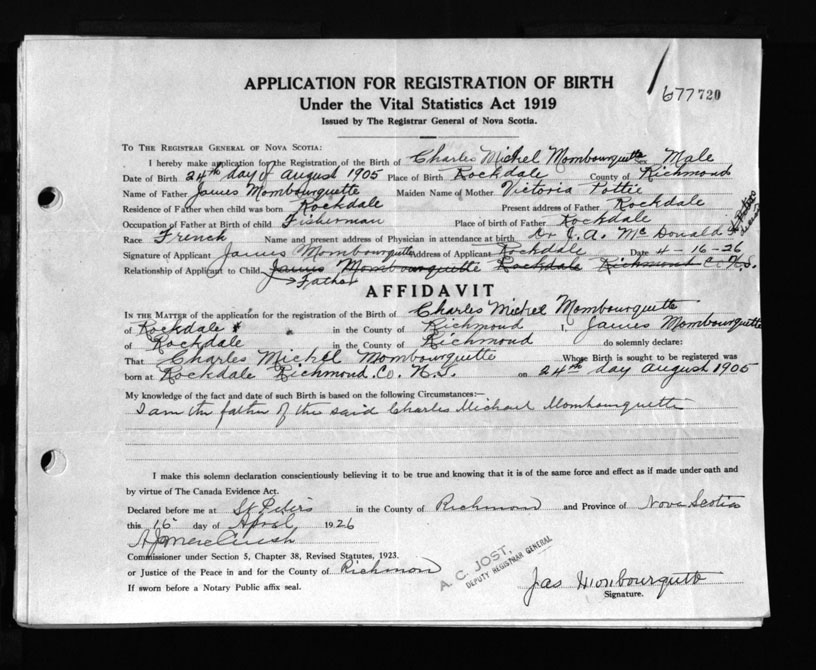 APPLICATION FOR REGISTRATION OF BIRTH
677720
Under the Vital Statistics Act 1919
Issued by The Registrar General of Nova Scotia.
To The Registrar General of Nova Scotia:
I hereby make application for the Registration of the Birth of Charles Michel Mombourquette Sex Male
Date of Birth 24th day of August 1905 Place of Birth Rockdale County of Richmond
Name of Father James Mombourquette Maiden Name of Mother Victoria Pottie
Residence of Father when child was born Rockdale Present address of Father Rockdale
Occupation of Father at Birth of child Fisherman Place of birth of Father Rockdale
Race French Name and present address of Physician in attendance at birth Dr J. A. McDonald St. Peters
Signature of Applicant James Mombourquette Address of Applicant Rockdale Date 4-16-26
Relationship of Applicant to Child James Mombourquette Rockdale Richmond Co. N.S.
Father
AFFIDAVIT
In the Matter of the application for the registration of the Birth of Charles Michel Mombourquette
of Rockdale in the County of Richmond I, James Mombourquette
of Rockdale in the County of Richmond do solemnly declare:
That Charles Michel Mombourquette Whose Birth is sought to be registered was
born at Rockdale Richmond Co. N.S. on 24th day August 1905
My knowledge of the fact and date of such Birth is based on the following Circumstances:—
I am the father of the said Charles Michael Mombourquette
I make this solemn declaration conscientiously believing it to be true and knowing that it is of the same force and effect as if made under oath and
by virtue of The Canada Evidence Act.
Declared before me at St Peters in the County of Richmond and Province of Nova Scotia
this 16 day of April 1926
Commissioner under Section 5, Chapter 38, Revised Statutes, 1923.
or Justice of the Peace in and for the County of Richmond
A. C. JOST,
DEPUTY REGISTRAR GENERAL
Jas Mombourquette
If sworn before a Notary Public affix seal.
Signature.